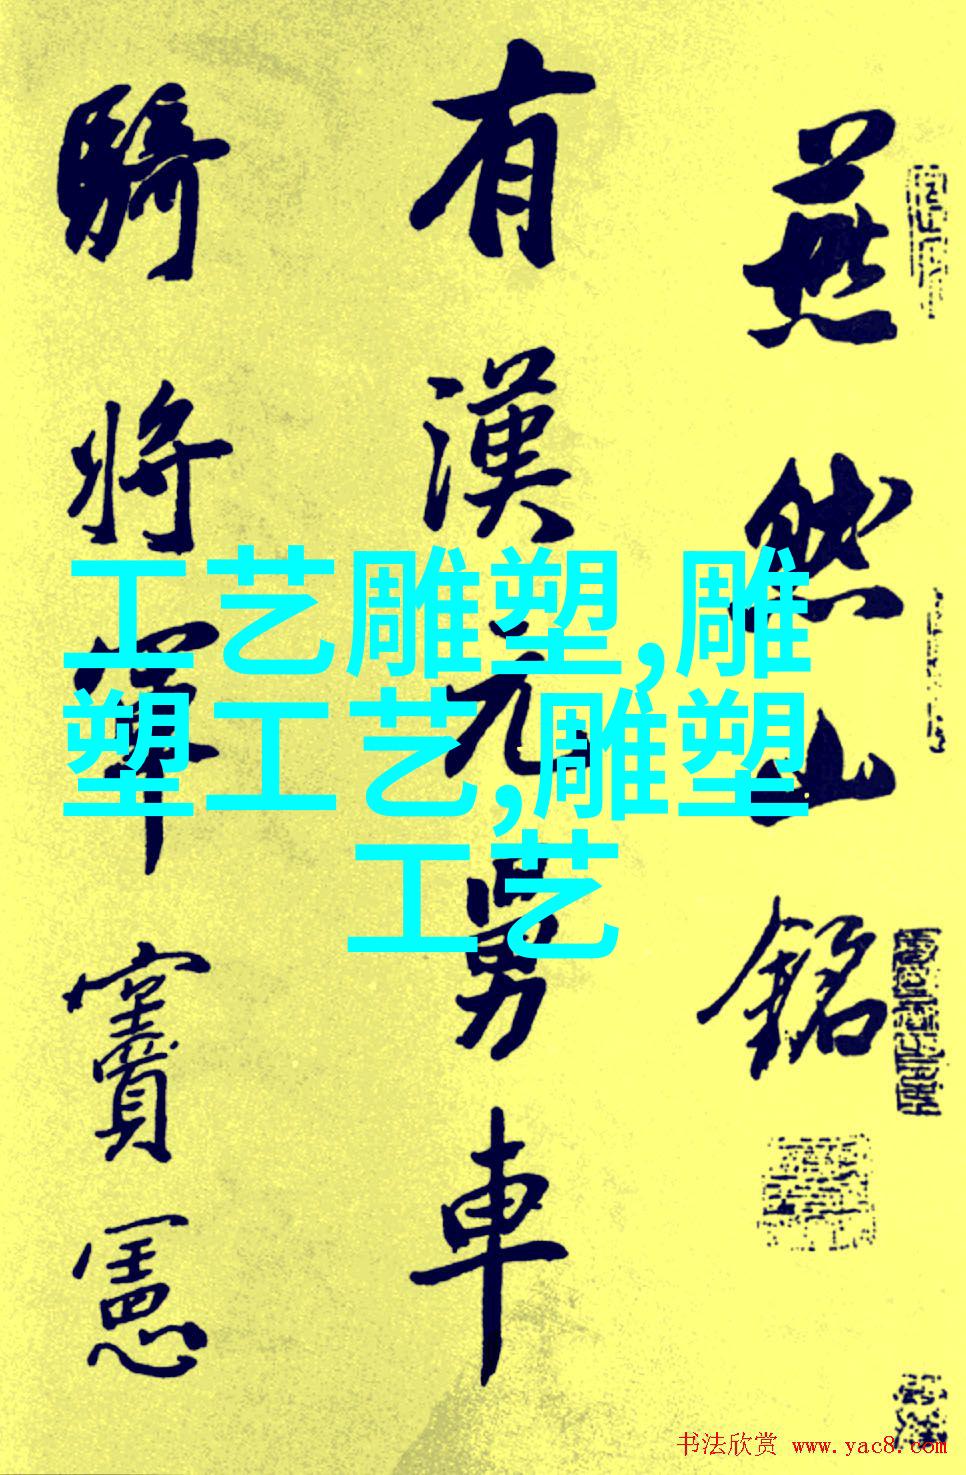 燕然山銘
有漢元舅車
騎將軍竇憲
工艺雕塑,雕
塑工艺,雕塑
工艺
书法欣赏 www.yac8.com